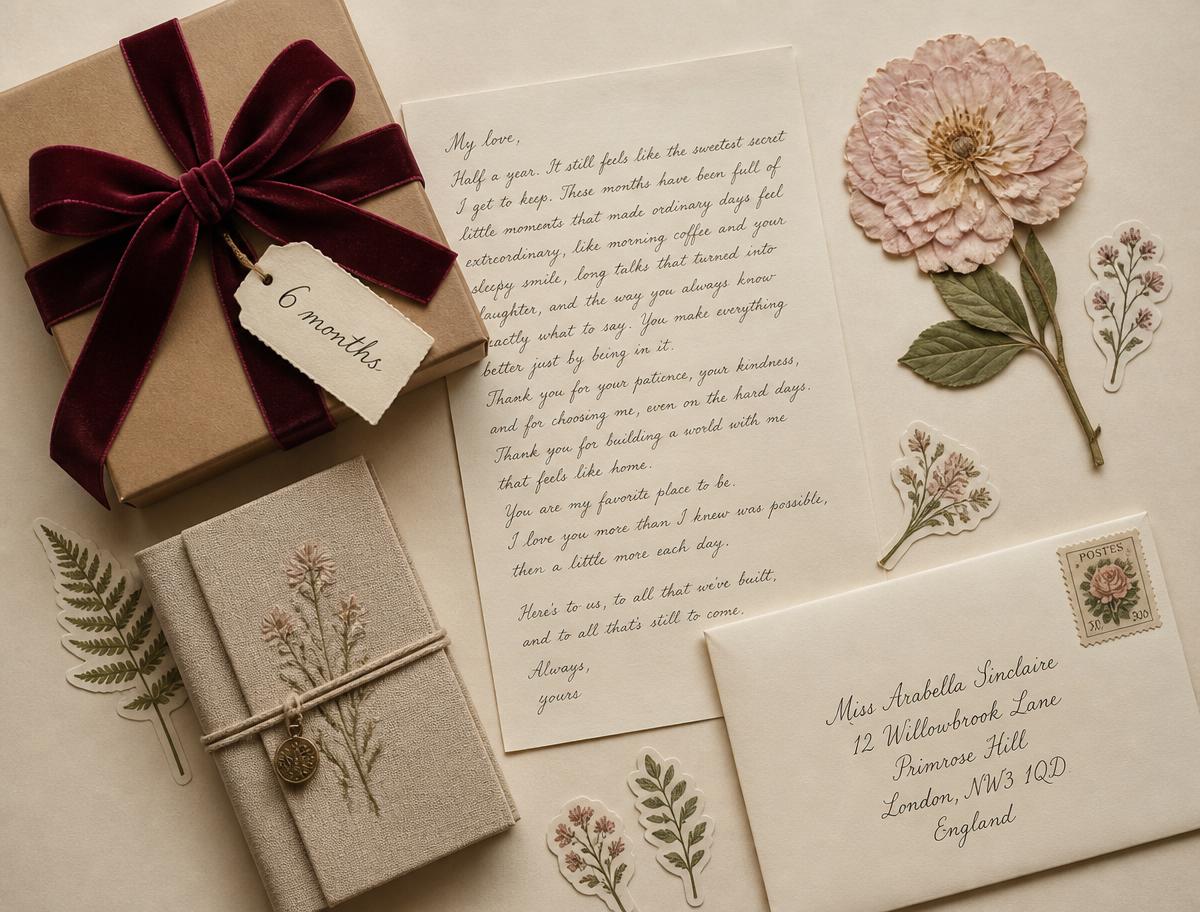 6 months
My love,
Half a year. It still feels like the sweetest secret
I get to keep. These months have been full of
little moments that made ordinary days feel
extrcordinary, like morning coffee and your
sleepy smile, long talks that turned into
laughter, and the way you always know
exactly what to say. You make everything
better just by being in it.
Thank you for your patience, your kindness,
and for choosing me, even on the hard days.
Thank you for building a world with me
that feels like home.
You are my favorite place to be.
I love you more than I knew was possible,
then a little more each day.
Here's to us, to all that we've built,
and to all that's still to come.
Always,
yours
POSTES
Miss Arabella Sinclaire
12 Willowbrook Lane
Primrose Hill
London, NW3 1QD
England